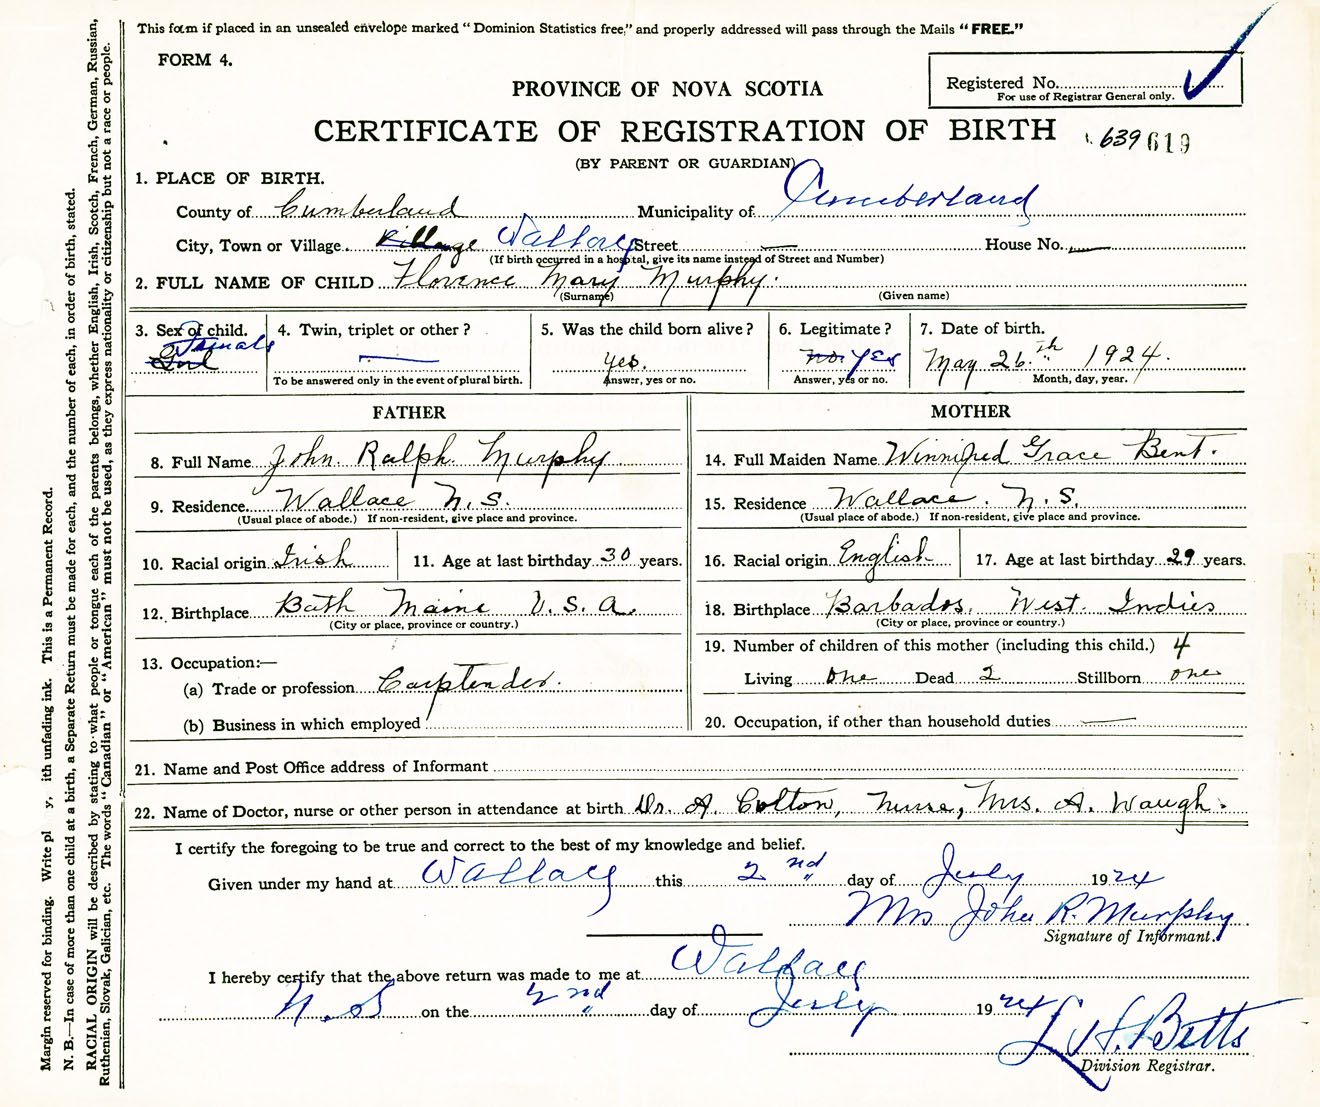 This form if placed in an unsealed envelope marked "Dominion Statistics free," and properly addressed will pass through the Mails "FREE."
FORM 4.
Registered No.
For use of Registrar General only.
PROVINCE OF NOVA SCOTIA
CERTIFICATE OF REGISTRATION OF BIRTH 639 619
(BY PARENT OR GUARDIAN)
1. PLACE OF BIRTH.
County of Cumberland Municipality of Cumberland
City, Town or Village. Village Wallace Street — House No. —
(If birth occurred in a hospital, give its name instead of Street and Number)
2. FULL NAME OF CHILD Florence Mary Murphy.
(Surname) (Given name)
3. Sex of child. 4. Twin, triplet or other? 5. Was the child born alive? 6. Legitimate? 7. Date of birth.
Female Girl — Yes. No. Yes May 26th 1924.
To be answered only in the event of plural birth. Answer, yes or no. Answer, yes or no. Month, day, year.
FATHER MOTHER
8. Full Name John Ralph Murphy 14. Full Maiden Name Winnifred Grace Bent.
9. Residence. Wallace N.S. 15. Residence Wallace. N.S.
(Usual place of abode.) If non-resident, give place and province. (Usual place of abode.) If non-resident, give place and province.
10. Racial origin Irish 11. Age at last birthday 30 years. 16. Racial origin English 17. Age at last birthday 29 years.
12. Birthplace Bath Maine U.S.A. 18. Birthplace Barbados, West Indies
(City or place, province or country.) (City or place, province or country.)
13. Occupation:— 19. Number of children of this mother (including this child.) 4
(a) Trade or profession Carptender. Living one Dead 2 Stillborn one
(b) Business in which employed 20. Occupation, if other than household duties —
21. Name and Post Office address of Informant
22. Name of Doctor, nurse or other person in attendance at birth Dr. A. Colton, Nurse, Mrs. A. Waugh.
I certify the foregoing to be true and correct to the best of my knowledge and belief.
Given under my hand at Wallace this 2nd day of July 1924
Mrs John R. Murphy
Signature of Informant.
I hereby certify that the above return was made to me at Wallace
N.S on the 2nd day of July 1924
L H. Betts
Division Registrar.
Margin reserved for binding. Write pl y, ith unfading ink. This is a Permanent Record.
N. B.—In case of more than one child at a birth, a Separate Return must be made for each, and the number of each, in order of birth, stated.
RACIAL ORIGIN will be described by stating to what people or tongue each of the parents belongs, whether English, Irish, Scotch, French, German, Russian,
Ruthenian, Slovak, Galician, etc. The words "Canadian" or "American" must not be used, as they express nationality or citizenship but not a race or people.